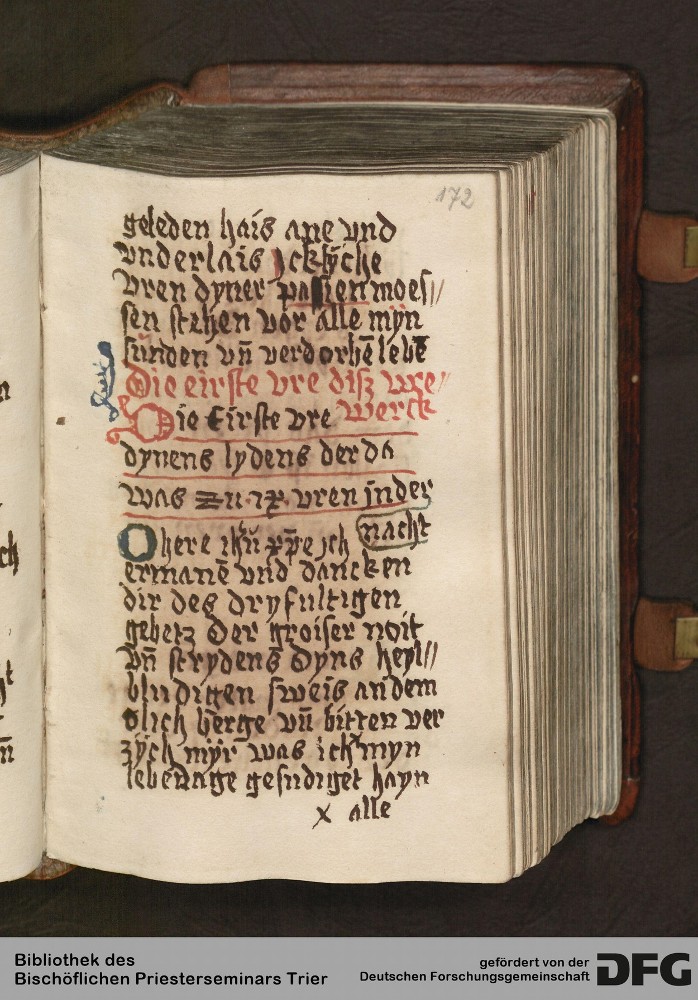 172
geleden hais ane vnd
vnderlais Jcklyche
vren dyner passien moes//
sen stehen vor alle myn
sunden vn̄ verdorbē lebē
Die eirste vre diß vre//
werck
Die Eirste vre
dynens lydens der da
was zu ix vren jnder
nacht
O here ihū xpē jch
ermanē vnd dancken
dir des dryfultigen
gebetz Der groiser noit
Vn̄ strydens Dyns heyl//
bludigen sweis an dem
olich berge vn̄ bitten ver
zych myr was ick myn
lebentage gesudiget hayn
x alle
Bibliothek des
Bischöflichen Priesterseminars Trier
gefördert von der
Deutschen Forschungsgemeinschaft
DFG